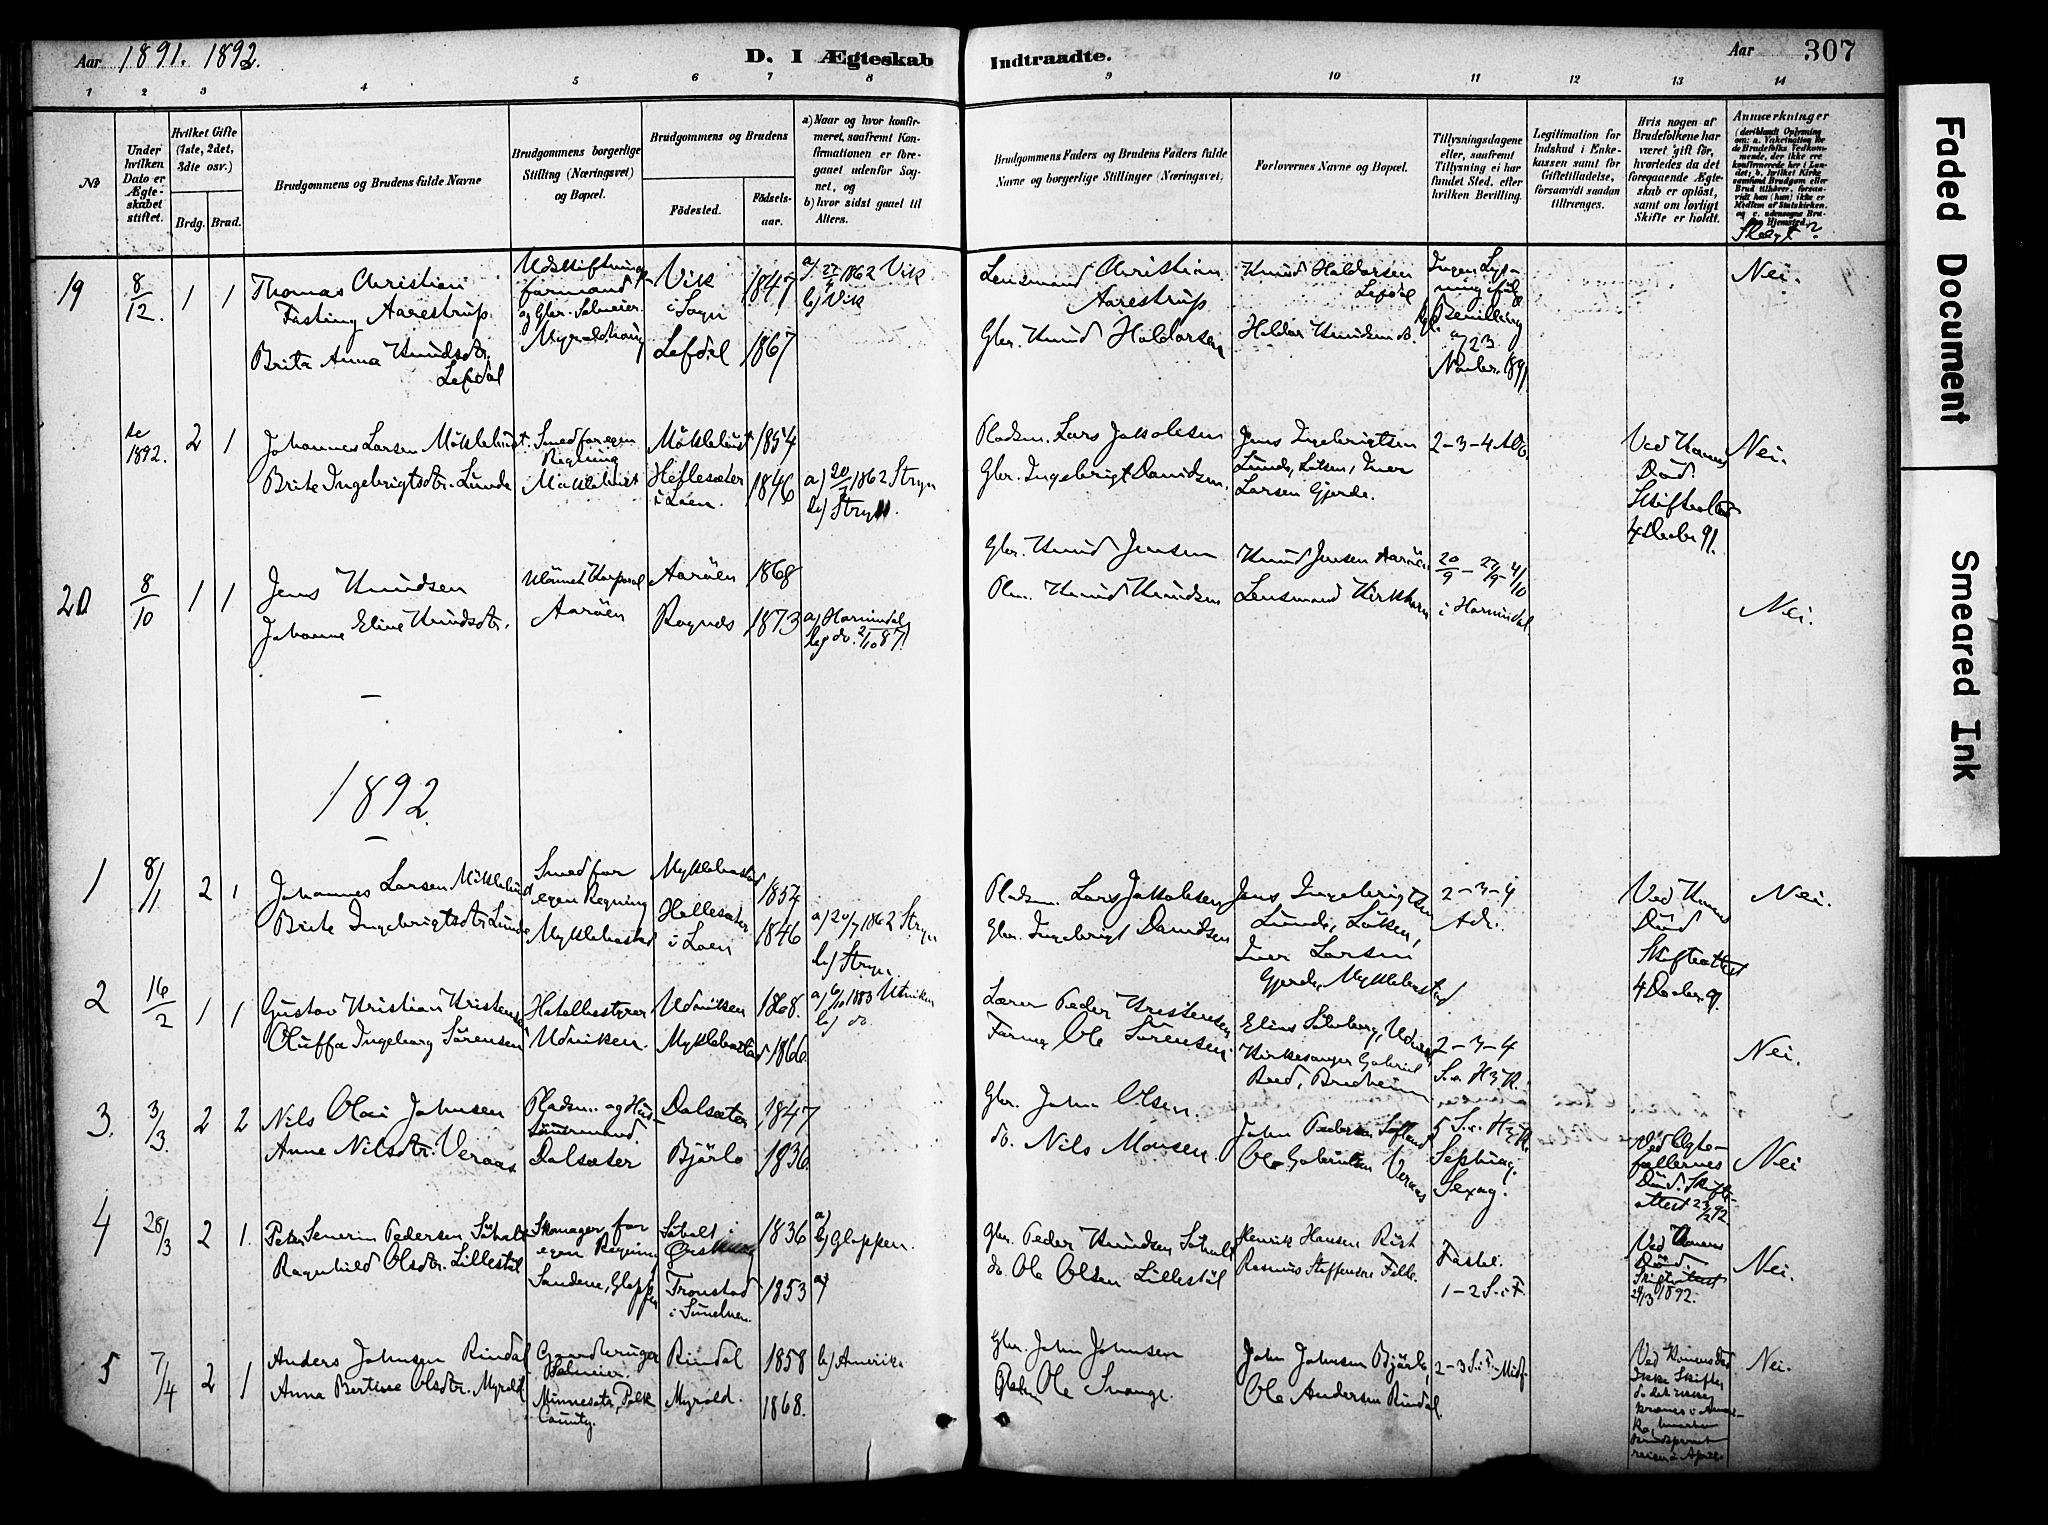 Aar 1891. 1892.
D. I Ægteskab Indtraadte.
Aar 307
1 2 3 4 5 6 7 8 9 10 11 12 13 14
No
Under hvilken Dato er Ægteskabet stiftet.
Hvilket Gifte (1ste, 2det, 3die osv.)
Brdg. Brud.
Brudgommens og Brudens fulde Navne
Brudgommens borgerlige Stilling (Næringsvei) og Bopæl.
Brudgommens og Brudens
Födested. Födselsaar.
a) Naar og hvor konfirmeret, saafremt Konfirmationen er foregaaet udenfor Sognet, og
b) hvor sidst gaaet til Alters.
Brudgommens Faders og Brudens Faders fulde Navne og borgerlige Stillinger (Næringsvei)
Forlovernes Navne og Bopæl.
Tillysningsdagene eller, saafremt Tillysning ei har fundet Sted, efter hvilken Bevilling.
Legitimation for Indskud i Enkekassen samt for Giftetilladelse, forsaavidt saadan tiltrænges.
Hvis nogen af Brudefolkene har været gift för, hvorledes da det foregaaende Ægteskab er oplöst, samt om lovligt Skifte er holdt.
Anmærkninger
19 8/12. 1 1
Thomas Christian
Fasting Aarestrup
Brita Anna Knudsdtr.
Lefdal
Udskiftnings-
formand
og Gbr. Selveier
Vik
i Sogn
Lefdal
1847
1867
a) 27/4 1862 Vik
b) Vik
Lensmand Christian
Aarestrup
Gbr. Knud Haldorsen
Knud Haldorsen
Lefdal
Haldor Knudsen do.
Ingen Lys-
ning ifølge
kgl. Bevilling
af 23
Novbr. 1891.
Nei.
se 1892. 2 1
Johannes Larsen Mökklebust
Brite Ingebrigtsdtr. Lunde
Smed for egen
Regning
Mökklebust
Mökklebust
Hellesæter
i Loen.
1854
1846
a) 20/7 1862 Stryn
b) Stryn.
Pladsm. Lars Jakobsen
Gbr. Ingebrigt Davidsen.
Jens Ingebrigtsen
Lunde, Löken, Iver
Larsen Gjerde.
2-3-4 Adv.
Ved Konens
Død.
Skifteattest
4 Decbr. 91.
Nei.
20 8/10 1 1
Jens Knudsen
Johanne Eline Knudsdtr.
Aaröen
Aaröen
Rognes
1868
1873
a) Hornindal
b) do. 2/10 87.
Gbr. Knud Jensen
Plm. Knud Knudsen
Knud Jensen Aaröen
Lensmand Kirkhorn
20/9 - 27/9 - 4/10
i Hornindal
Nei.
1892.
1 8/1 2 1
Johannes Larsen Mökklebust
Brite Ingebrigtsdtr. Lunde
Smed for
egen Regning
Myklebustad
Myklebustad
Hellesæter
i Loen
1854
1846
a) 20/7 1862 Stryn
b) Stryn.
Pladsm. Lars Jakobsen
Gbr. Ingebrigt Davidsen
Jens Ingebrigtsen
Lunde, Löken,
Iver Larsen
Gjerde, Myklebustad
2-3-4
Adv.
Ved Konens
Død
Skifteattest
4 Decbr. 91
Nei.
2 16/2 1 1
Gustav Kristian Kristensen
Oluffa Ingeborg Sörensen
Hotelbestyrer
Udviken.
Udviken
Myklebustad
1868.
1866.
a) 6/10 1883 Utviken
b) do.
Lærer Peder Kristensen
Farver Ole Sörensen.
Elias Solberg, Udviken
Kirkesanger Gabriel
Reed, Bredheim
2-3-4
S. e. H3K.
Nei.
3. 3/3. 2 2
Nils Olai Johnsen
Anne Nilsdtr. Veraas
Pladsm. og Hus-
tömmermand.
Dalsæter
Dalsæter
Bjørlo
1847
1836.
Gbr. John Olsen.
do. Nils Monsen.
John Pedersen Sefland
Ole Gabrielsen Veraas
5 S. e. H3K.
Septuag.
Sexag.
Ved Ægte-
fællernes
Død. Skifte-
attest 23/2 92.
Nei
4 28/3 2 1.
Peter Severin Pedersen Söholt
Ragnhild Olsdtr. Lillestöl
Skomager for
egen Regning
Sandene, Gloppen
Söholt i
Ørskoug
Tronstad
i Sunelven.
1836
1853
a)
b) Gloppen.
a)
Gbr. Peder Knudsen Söholt
do. Ole Olsen Lillestöl
Henrik Hansen Rist
Rasmus Steffensen Felle.
Fastel.
1-2 S. i F.
Ved Konens
Død.
Skifteattest
24/3 1892.
Nei.
5 7/4 2 1
Anders Johnsen Rindal
Anna Bertine Olsdtr. Myrold
Gaardbruger
Selveier
Minnesota, Polk
County.
Rindal
Myrold.
1858
1868.
b) Amerika
Gbr. John Johnsen
Ole Svange.
John Johnsen Bjørlo,
Ole Andersen Rindal.
2-3 S. i F. Midf.
Ved Konens Død
Ikke Skifte,
da det ikke
kræves i Ame-
Nei.
Faded Document
Smeared Ink